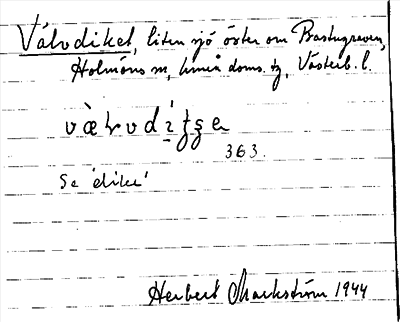 Välvdiket, liten sjö öster om Bastugraven,
Holmöns sn, Umeå doms. tg, Västerb. l.
363.
Se 'dike'
Herbert Markström 1944